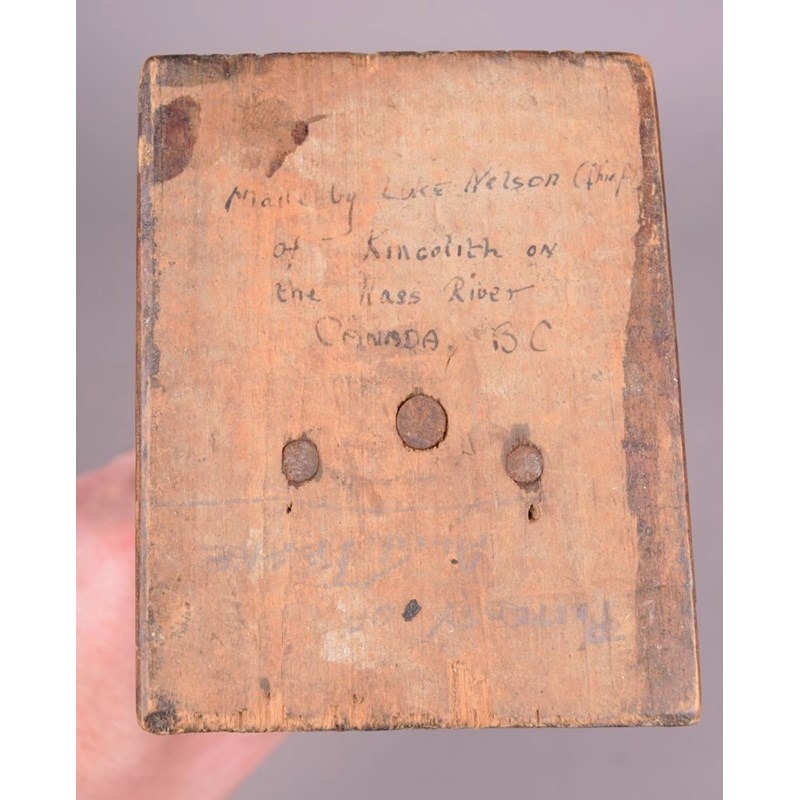 Made by Luke Nelson (Chief)
of Kincolith on
the Nass River
CANADA, BC
PROPERTY OF